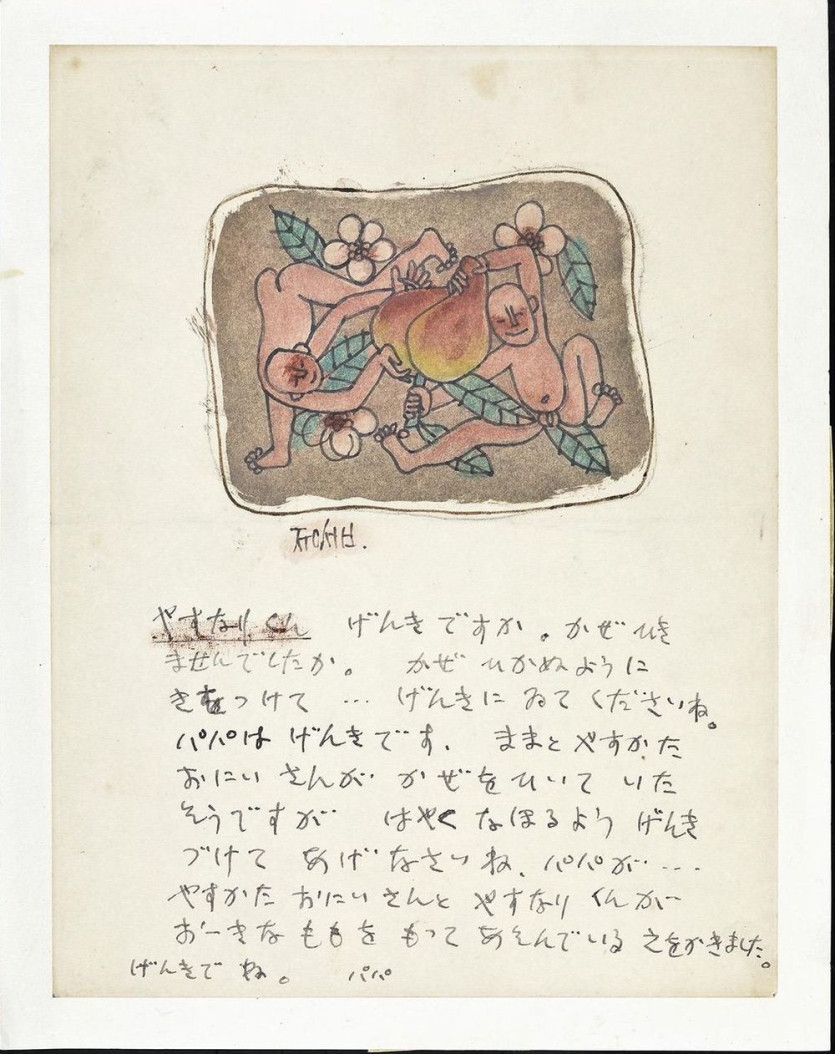 やすなりくん げんきですか。かぜひき
ませんでしたか。 かぜ ひかぬように
きをつけて … げんきに ゐて くださいね。
パパは げんきです. ままと やすかた
おにい さんが かぜを ひいて いた
そうですが はやく なほるよう げんき
づけて あげなさいね. パパが …
やすかた おにいさんと やすなり くんが
おーきな ももを もって あそんでいる えをかきました。
げんきでね。 パパ